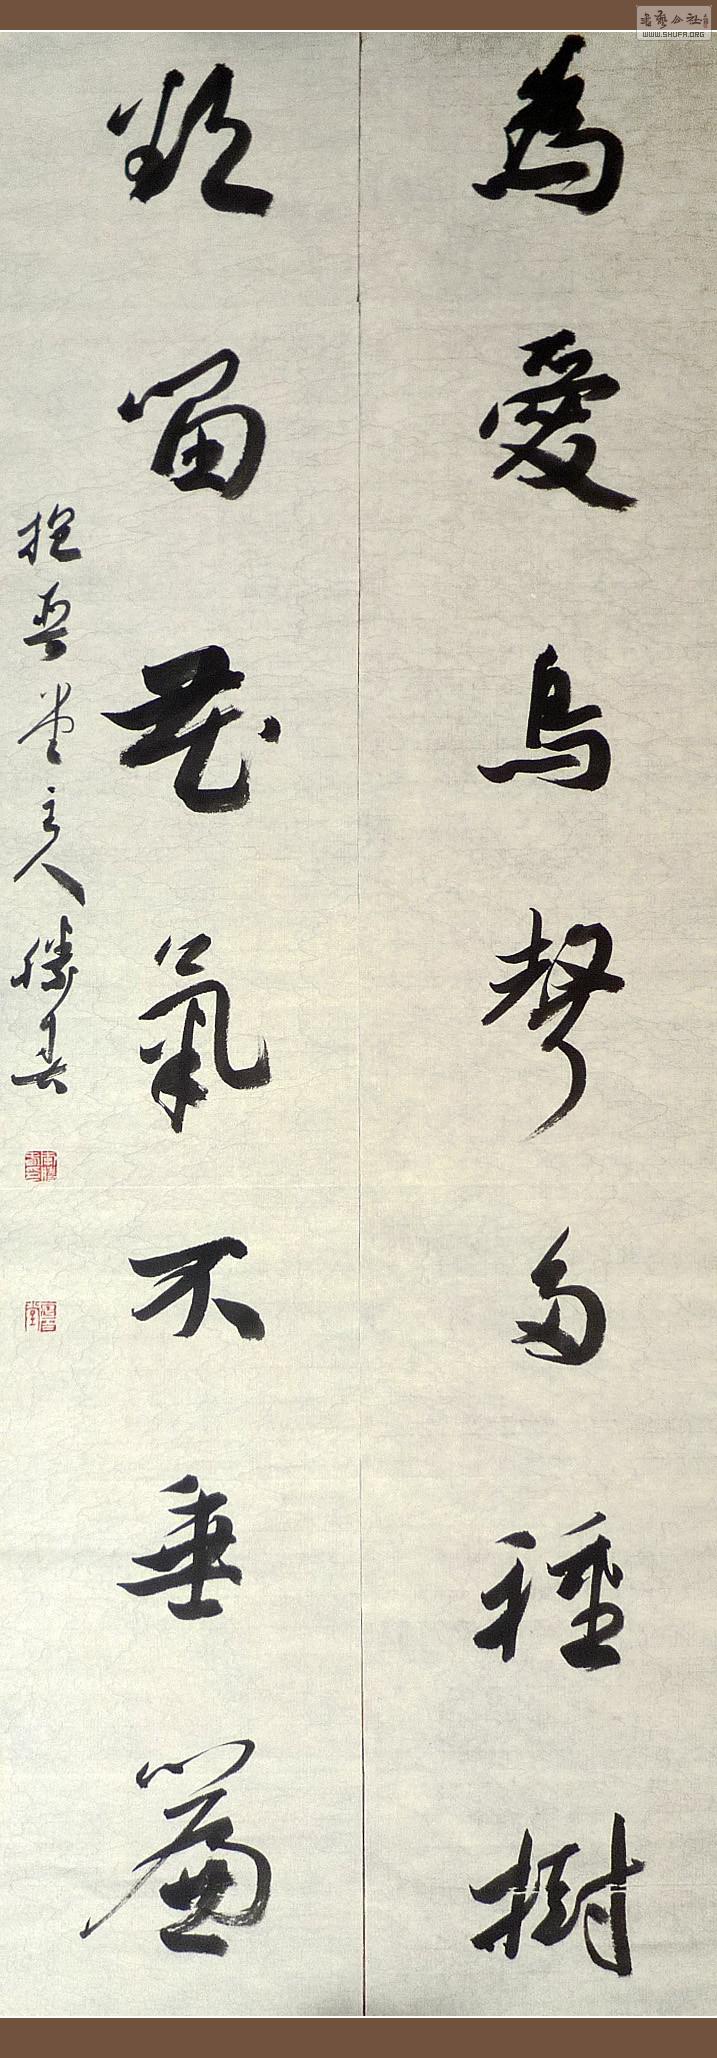 書藝公社
WWW.SHUFA.ORG
為愛鳥聲多種樹
欲留花氣不垂簾
堂主人